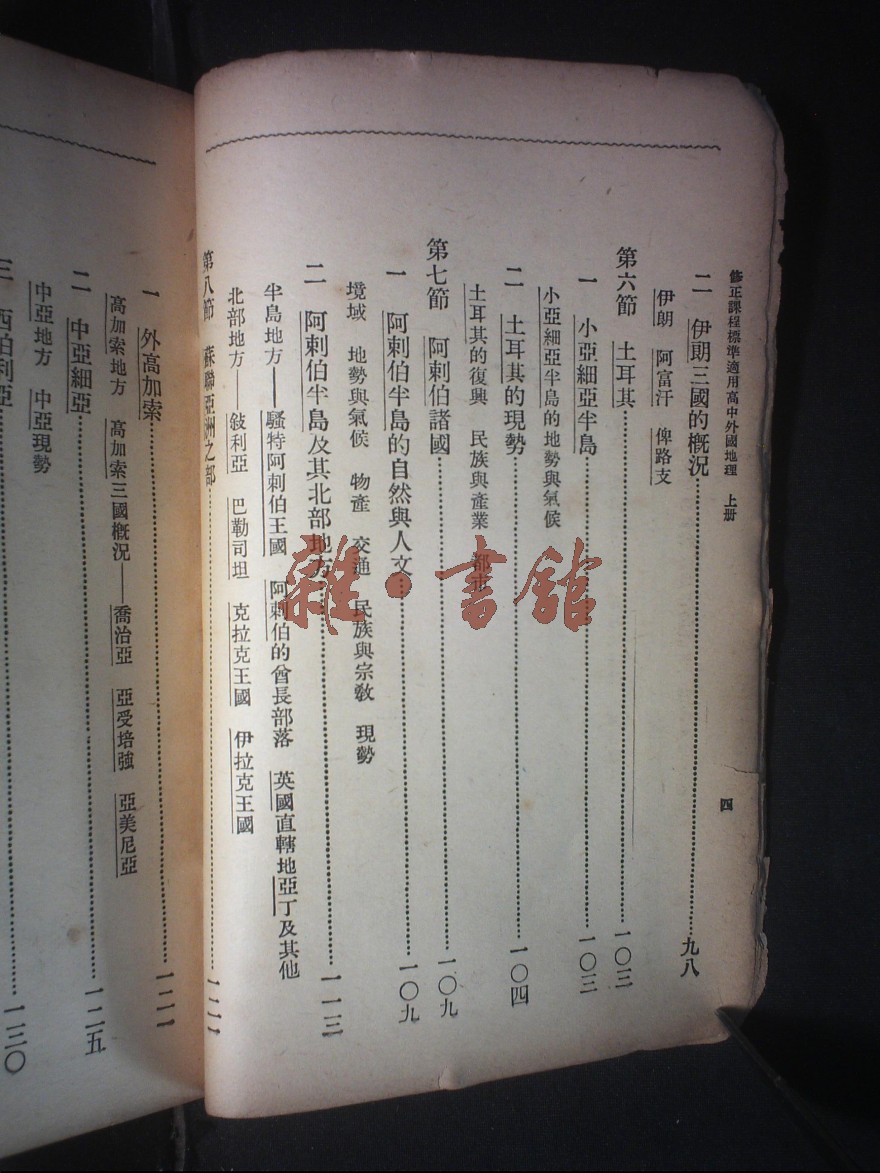 修正課程標準適用高中外國地理　上册
四
二　伊朗三國的概況……九八
伊朗　阿富汗　俾路支
第六節　土耳其……一〇三
一　小亞細亞半島……一〇三
小亞細亞半島的地勢與氣候
二　土耳其的現勢……一〇四
土耳其的復興　民族與產業　都市
第七節　阿剌伯諸國……一〇九
一　阿剌伯半島的自然與人文……一〇九
境域　地勢與氣候　物產　交通　民族與宗敎　現勢
二　阿剌伯半島及其北部地方……一一三
半島地方——騷特阿剌伯王國　阿剌伯的酋長部落　英國直轄地亞丁及其他
北部地方——敍利亞　巴勒司坦　克拉克王國　伊拉克王國
第八節　蘇聯亞洲之部……一二一
一　外高加索……一二一
高加索地方　高加索三國概況——喬治亞　亞受培強　亞美尼亞
二　中亞細亞……一二五
中亞地方　中亞現勢
三　西伯利亞……一三〇
雜·書館